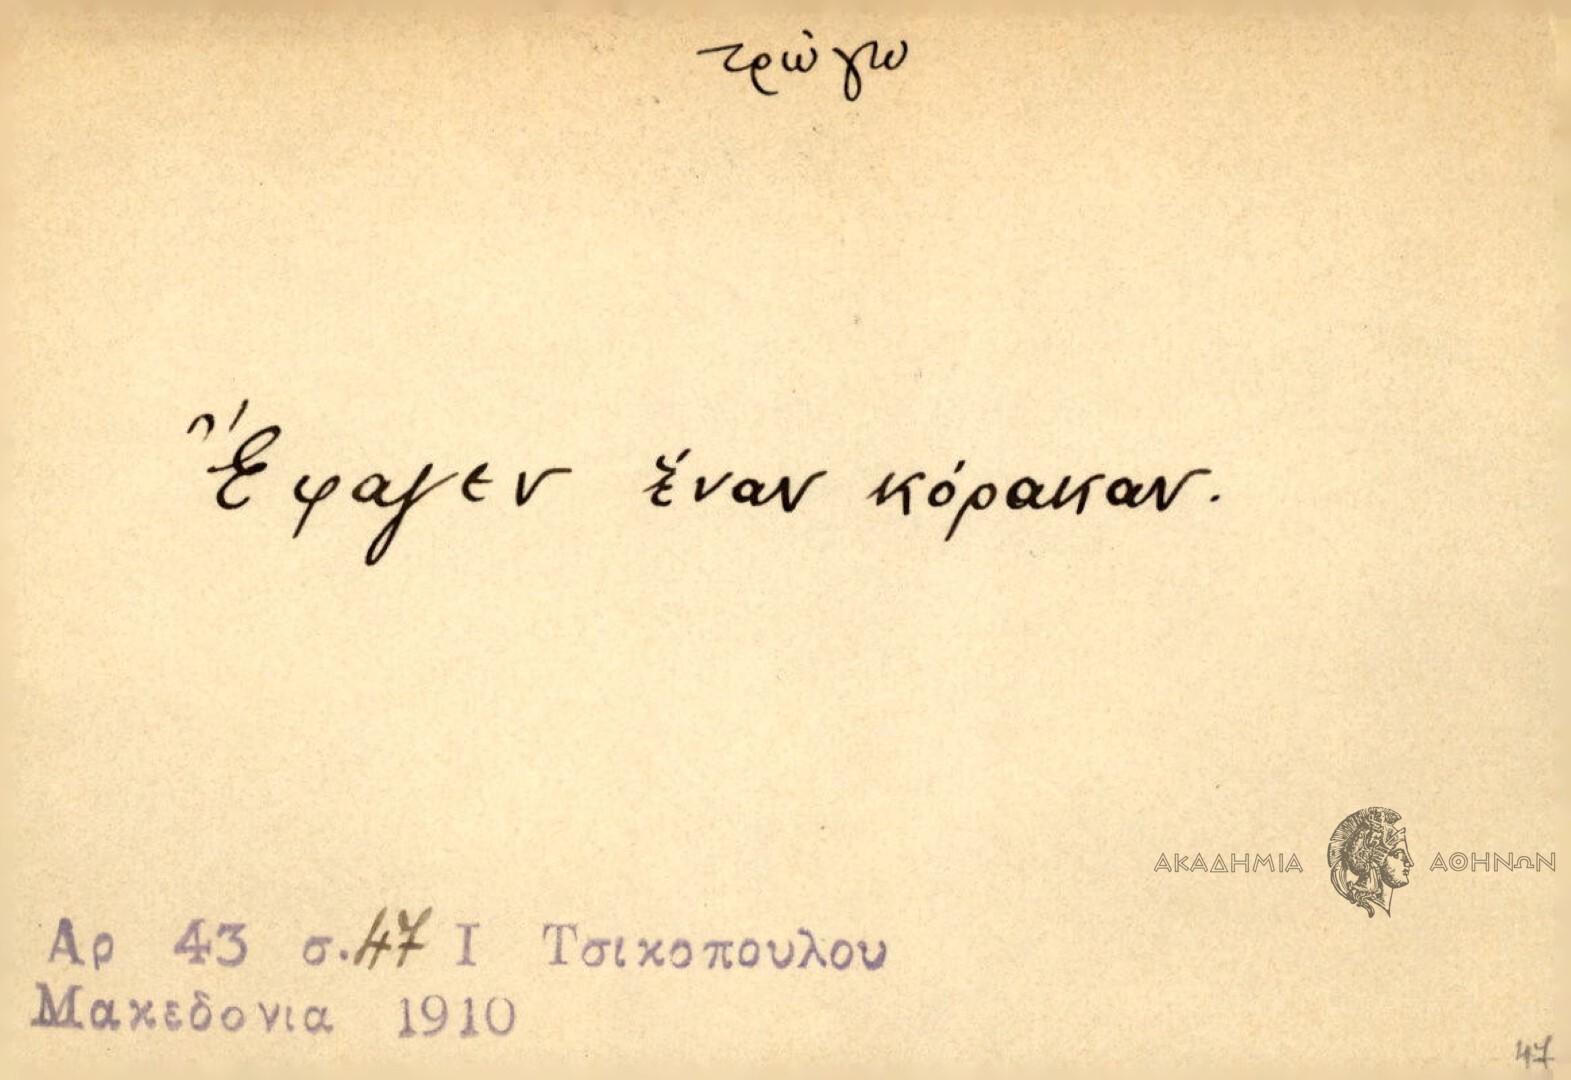 τρώγω
Ἔφαγεν ἕναν κόρακαν.
ΑΚΑΔΗΜΙΑ ΑΘΗΝΩΝ
Αρ 43 σ.47 Ι Τσικοπουλου
Μακεδονια 1910
47